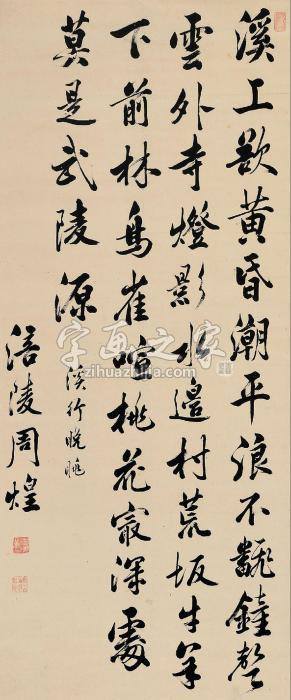 溪上欲黄昏潮平浪不飜鐘聲
雲外寺燈影水邊村荒坂牛羊
下前林鳥雀喧桃花㝡深處
莫是武陵源 溪行晚眺
涪陵周煌
字画之家
zihuazhijia.com